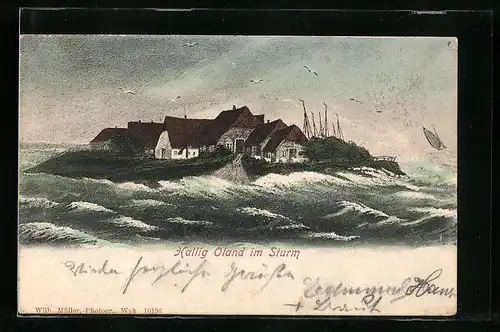 Hallig Oland im Sturm
herzliche Grüße
Hans
+ Braut
Wilh. Müller, Photogr., Wyk 10196